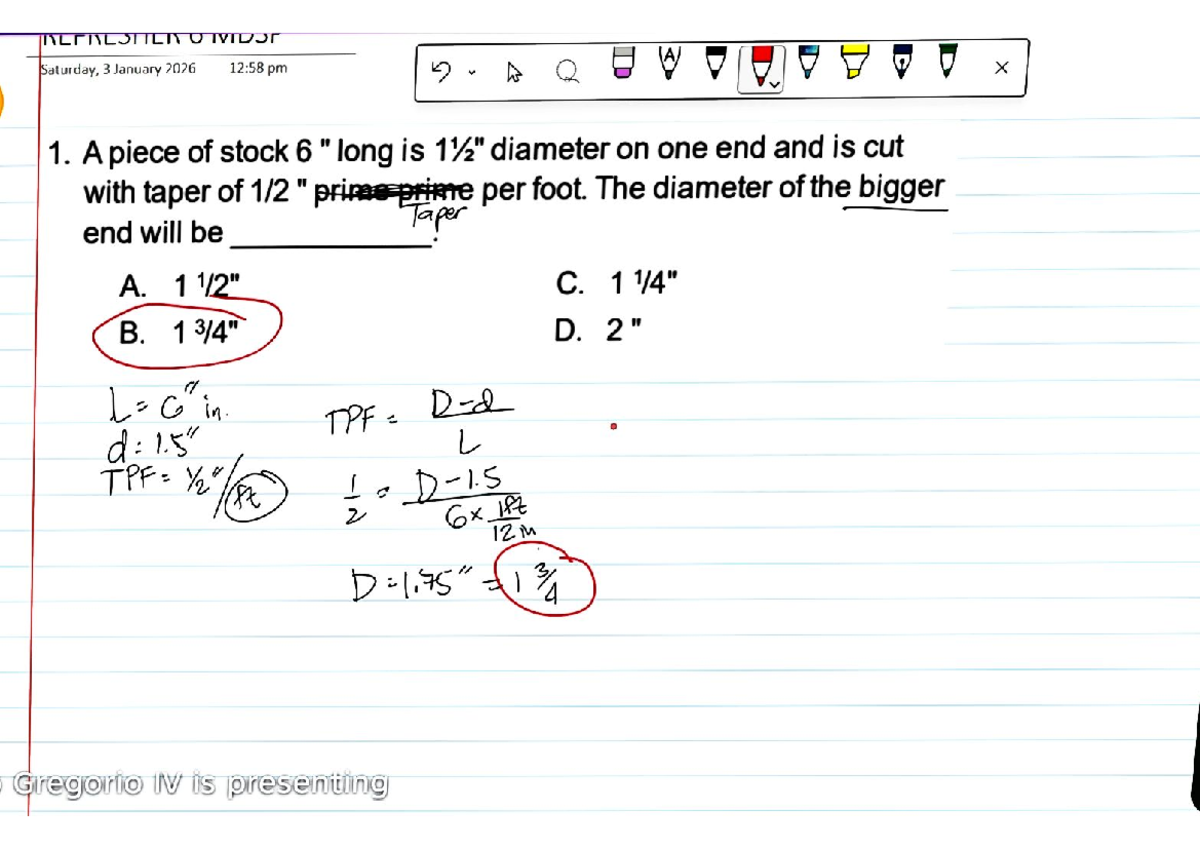 REFRESHER 6 MDSP
Saturday, 3 January 2026 12:58 pm
1. A piece of stock 6 " long is 1½" diameter on one end and is cut
with taper of 1/2 " prime prime per foot. The diameter of the bigger
Taper
end will be ____________.
A. 1 1/2"
B. 1 3/4"
C. 1 1/4"
D. 2 "
L = 6" in.
d = 1.5"
TPF = 1/2"/ft
TPF = D-d / L
1/2 = D-1.5 / 6 x 1ft/12in
D = 1.75" = 1 3/4
Gregorio IV is presenting